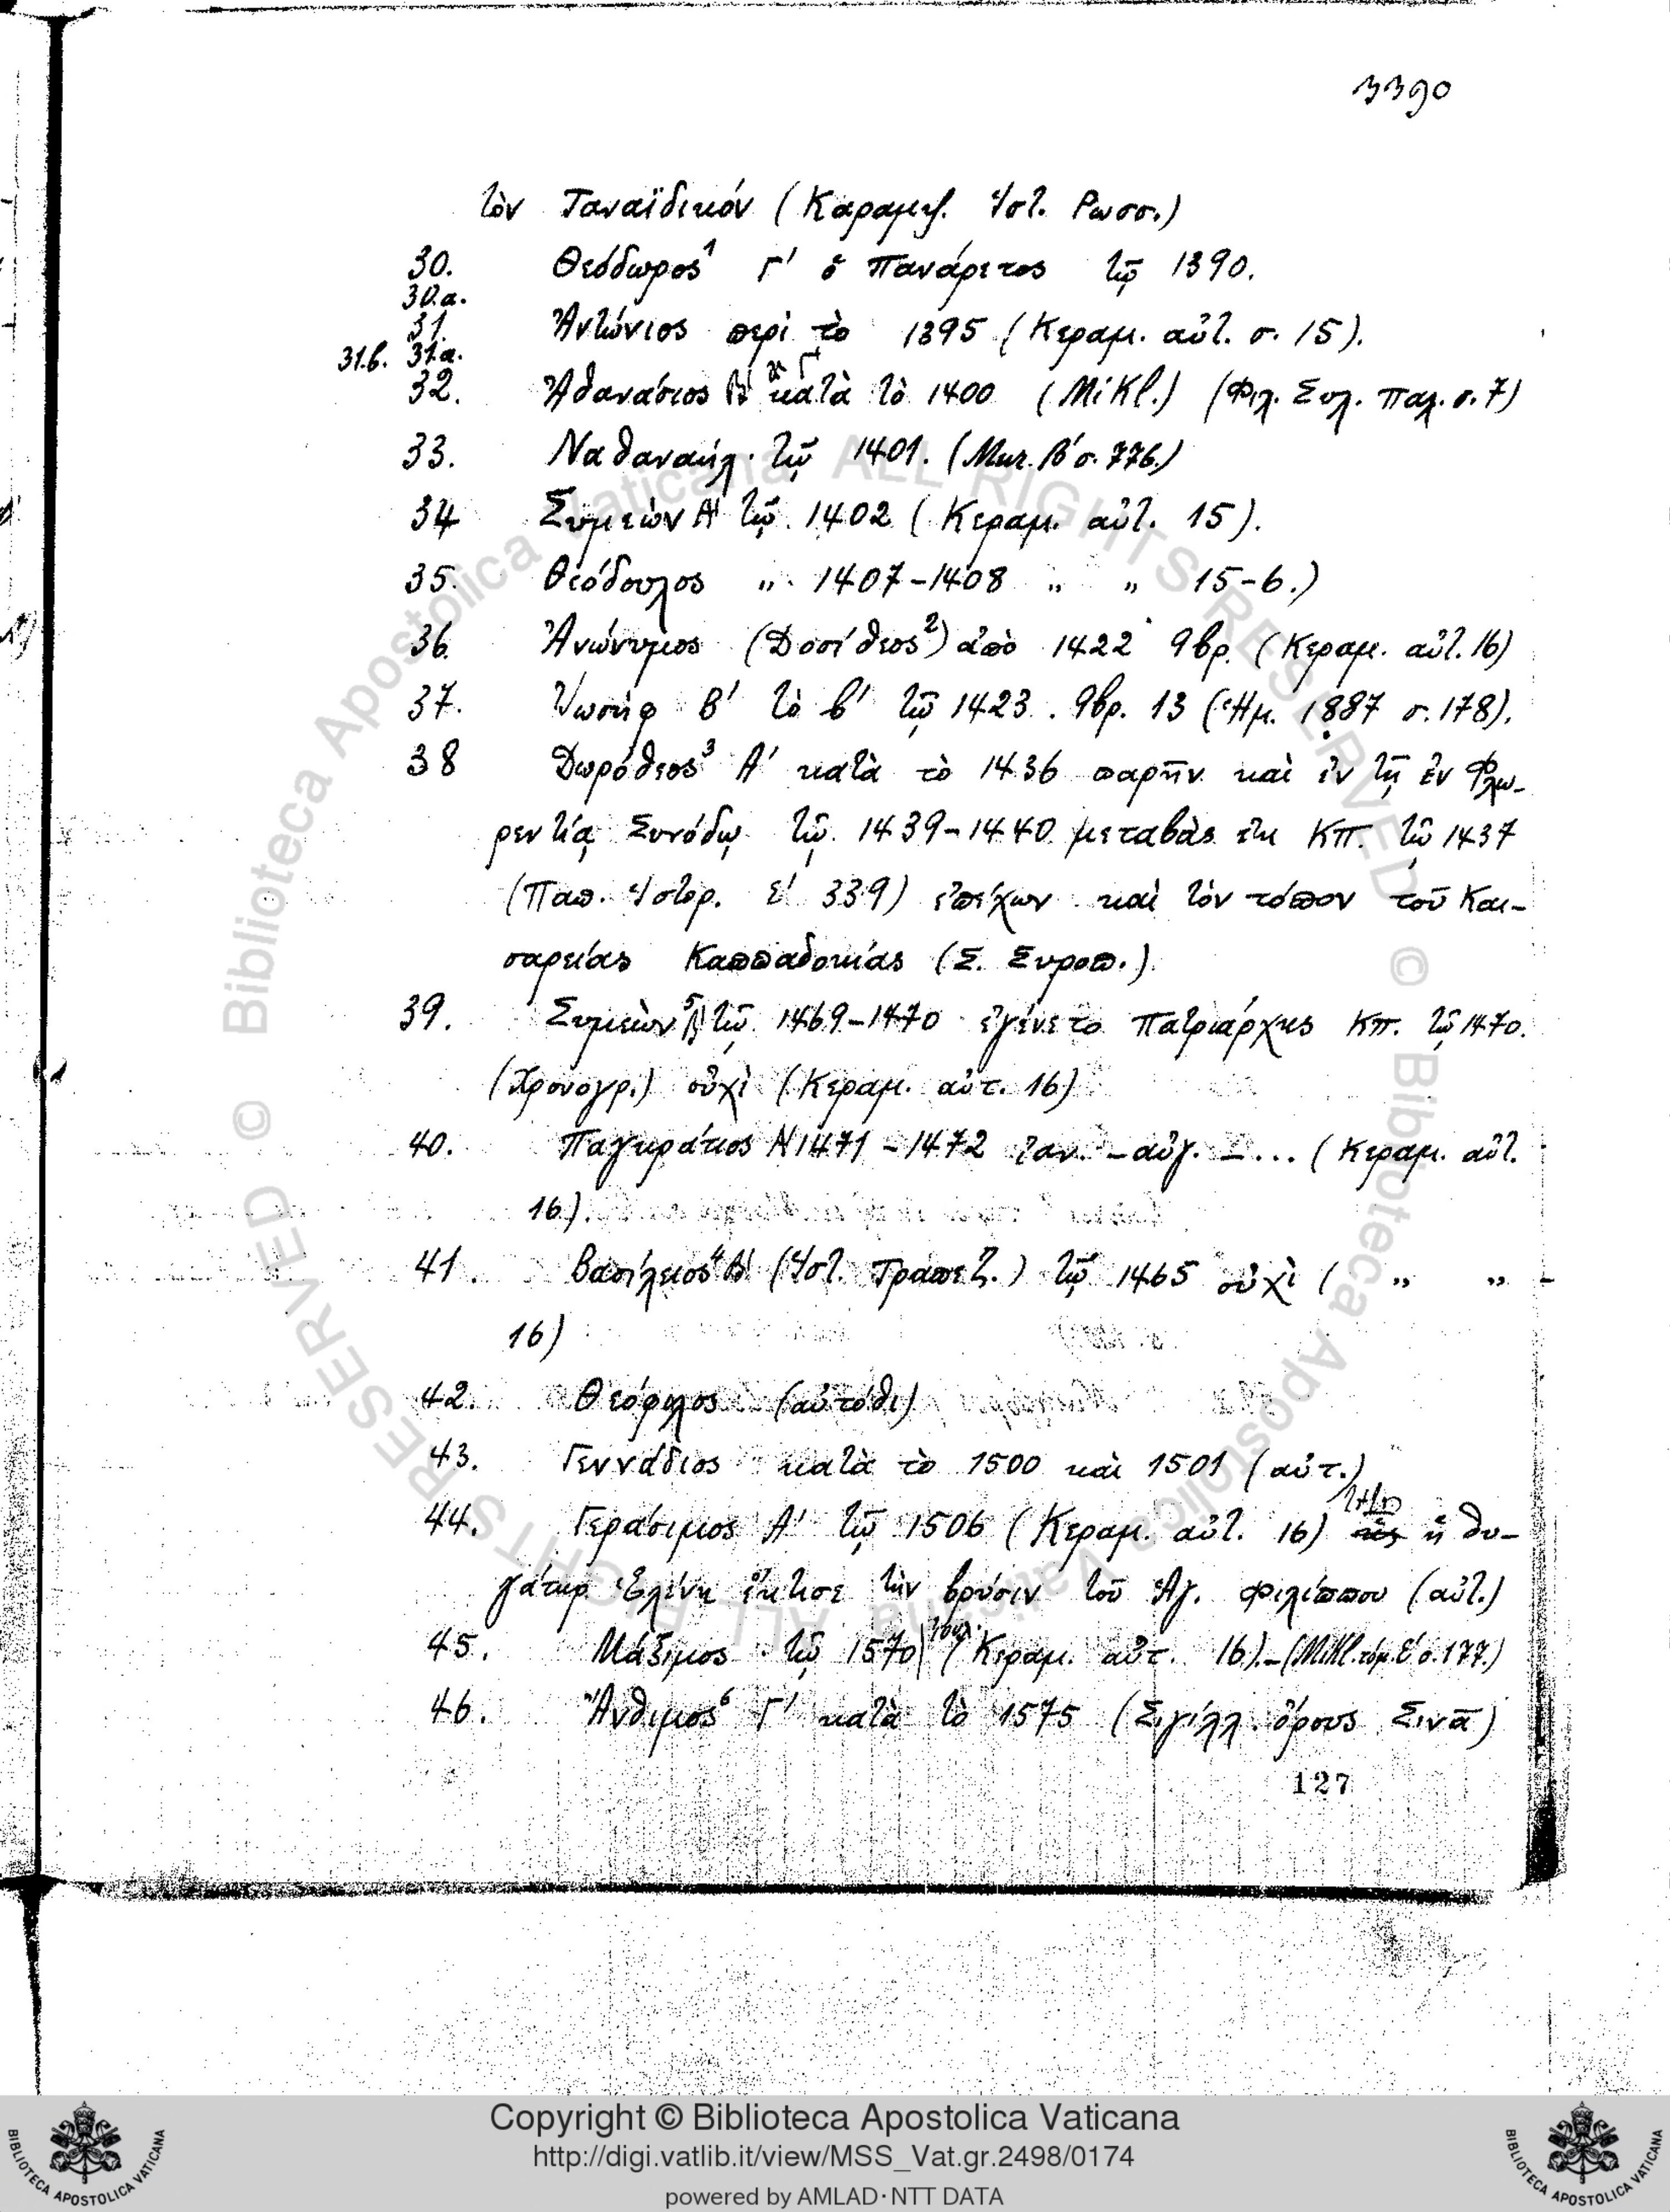 3390
τὸν Ταναϊδικόν (Καραμζ. Ἱστ. Ρωσσ.)
30. Θεόδωρος¹ Γ' ὁ Πανάρετος τῷ 1390.
30.α.
31. Ἀντώνιος περὶ τὸ 1395 (Κεραμ. αὐτ. σ. 15).
31.β. 31.α.
32. Ἀθανάσιος κατὰ τὸ 1400 (Mikl.) (Φιλ. Συλ. Παλ. σ. 7)
33. Ναθαναήλ τῷ 1401. (Μικ. β' σ. 776.)
34 Συμεών Α' τῷ 1402 (Κεραμ. αὐτ. 15).
35. Θεόδουλος „ 1407-1408 „ „ 15-6.)
36. Ἀνώνυμος (Δοσίθεος²) ἀπὸ 1422 9βρ. (Κεραμ. αὐτ. 16)
37. Ἰωσὴφ Β' τὸ β' τῷ 1423. 9βρ. 13 (Ἡμ. 1887 σ. 178).
38 Δωρόθεος³ Α' κατὰ τὸ 1436 παρῆν καὶ ἐν τῇ ἐν Φλω-
ρεντίᾳ Συνόδῳ τῷ 1439-1440 μεταβὰς ἐκ ΚΠ. τῷ 1437
(Παπ. Ἱστορ. 339) ἐπέχων καὶ τὸν τόπον τοῦ Και-
σαρείας Καππαδοκίας (Σ. Συροπ.).
39. Συμεὼν⁵ τῷ 1469-1470 ἐγένετο Πατριάρχης ΚΠ. τῷ 1470.
(Χρονογρ.) οὐχὶ (Κεραμ. αὐτ. 16)
40. Παγκράτιος 1471-1472 Ἰαν. - αὐγ. - ... (Κεραμ. αὐτ.
16).
41. Βασίλειος⁴ Β' (Ἱστ. Τραπεζ.) τῷ 1465 οὐχὶ ( „ „ -
16)
42. Θεόφιλος (αὐτόθι)
43. Γεννάδιος κατὰ τὸ 1500 καὶ 1501 (αὐτ.)
44. Γεράσιμος Α' τῷ 1506 (Κεραμ. αὐτ. 16) ἡ θυ-
γάτηρ Ἑλένη ἔκτισε τὴν βρύσιν τοῦ Ἁγ. Φιλίππου (αὐτ.)
45. Μάξιμος τῷ 1570 Ἰουλ. (Κεραμ. αὐτ. 16).-(Mikl. τόμ. Ε' σ. 177.)
46. Ἄνθιμος⁶ Γ' κατὰ τὸ 1575 (Σιγίλλ. ὄρους Σινᾶ)
127
© Biblioteca Apostolica Vaticana ALL RIGHTS RESERVED © Biblioteca Apostolica Vaticana ALL RIGHTS RESERVED
Copyright © Biblioteca Apostolica Vaticana
http://digi.vatlib.it/view/MSS_Vat.gr.2498/0174
powered by AMLAD·NTT DATA
BIBLIOTECA APOSTOLICA VATICANA
BIBLIOTECA APOSTOLICA VATICANA